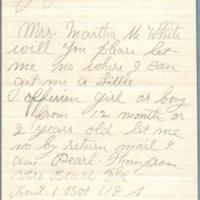 Mrs. Martha M White
will you please let
me no where I can
get me a Little
girl or boy
from 12 month or
2 years old let me
no by return mail
am Pearl Thompson
Vero Beach Fla
Rout 1 Box 618 A